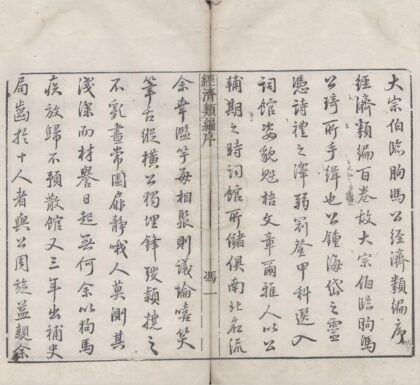 大宗伯臨朐馮公經濟類編序
經濟類編百卷故大宗伯臨朐馮
公琦所手緝也公鍾海岱之靈
憑詩禮之澤弱冠登甲科選入
詞館姿貌魁梧文章爾雅人以公
輔期之時詞館所儲俱南北名流
經濟類編序 馮 一
余幸濫竽每相聚則議論嘻笑
筆舌縱橫公獨埋鋒穎撓之
不亂晝常闔扉靜哦人莫測其
淺深而材譽日起無何余以狗馬
疾放歸不預散館又三年出補史
局齒於十人者與公周旋益親余